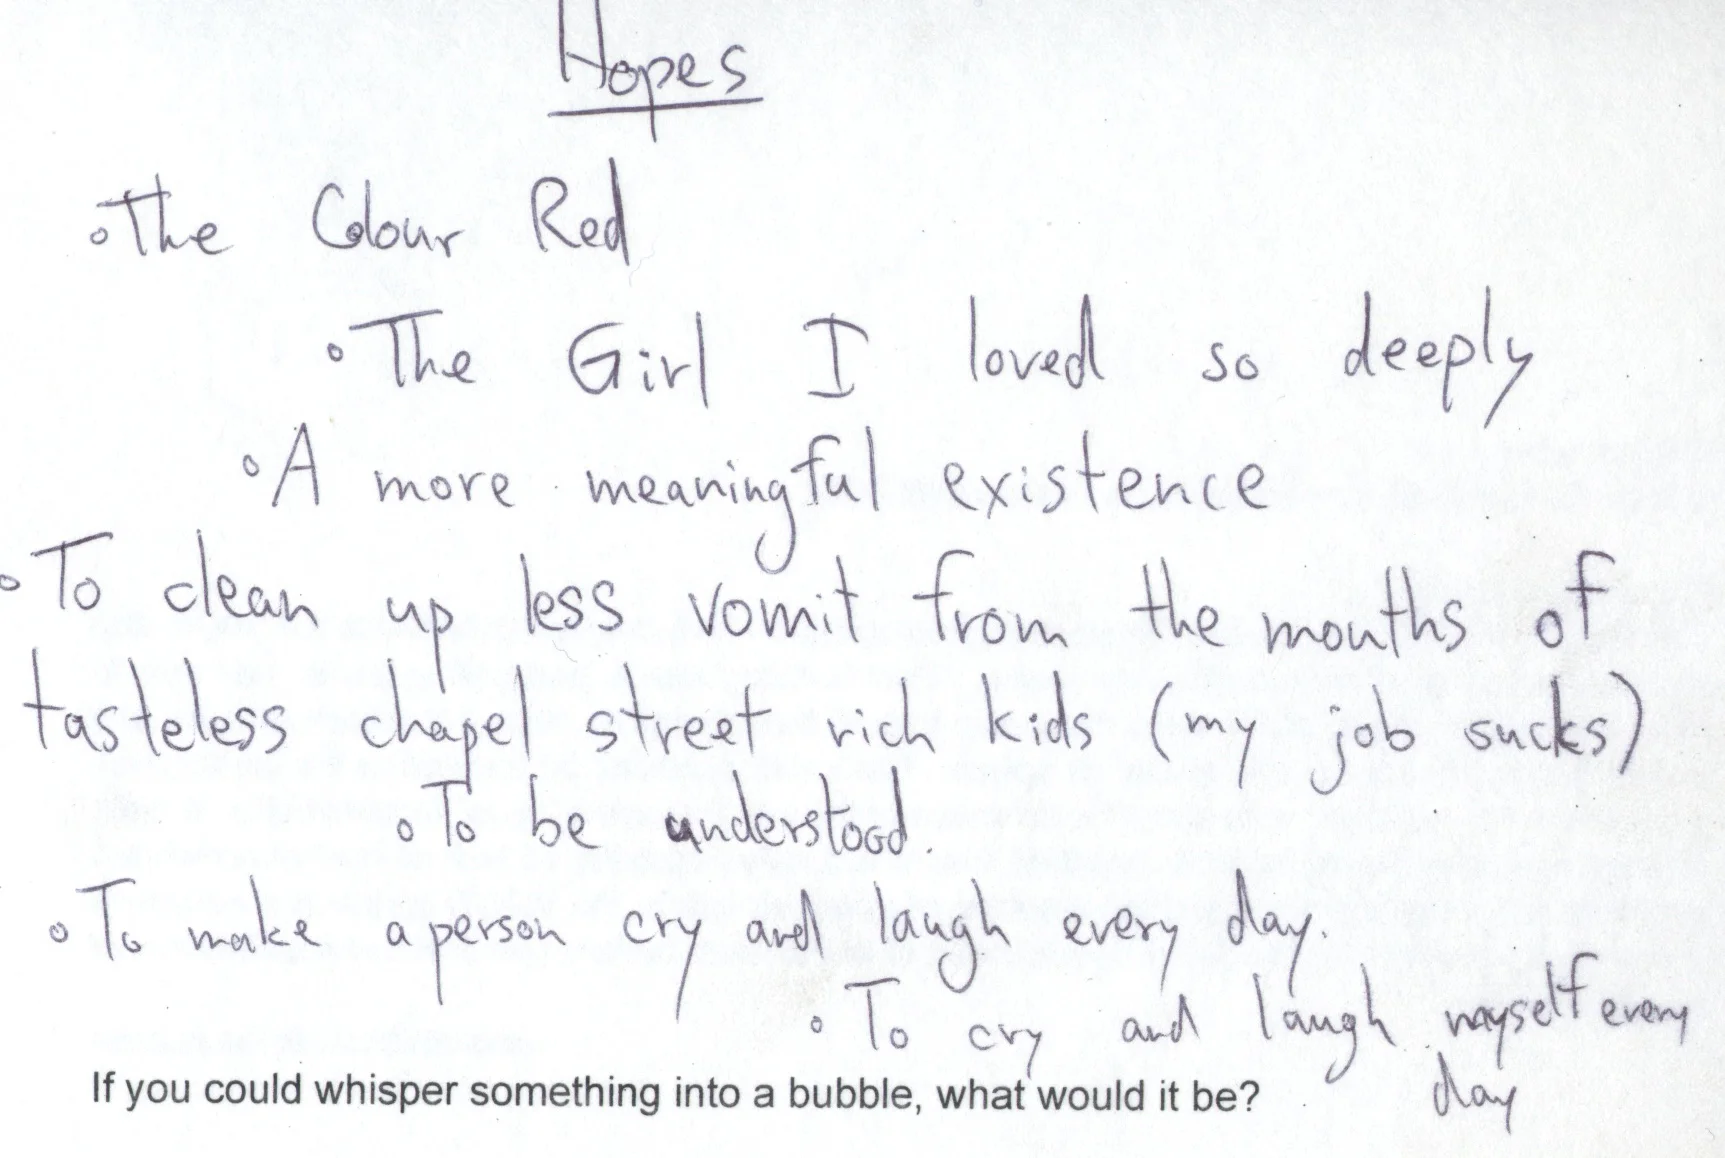 Hopes
◦ The Colour Red
◦ The Girl I loved so deeply
◦ A more meaningful existence
◦ To clean up less vomit from the mouths of
tasteless chapel street rich kids (my job sucks)
◦ To be understood.
◦ To make a person cry and laugh every day.
◦ To cry and laugh myself every
day
If you could whisper something into a bubble, what would it be?